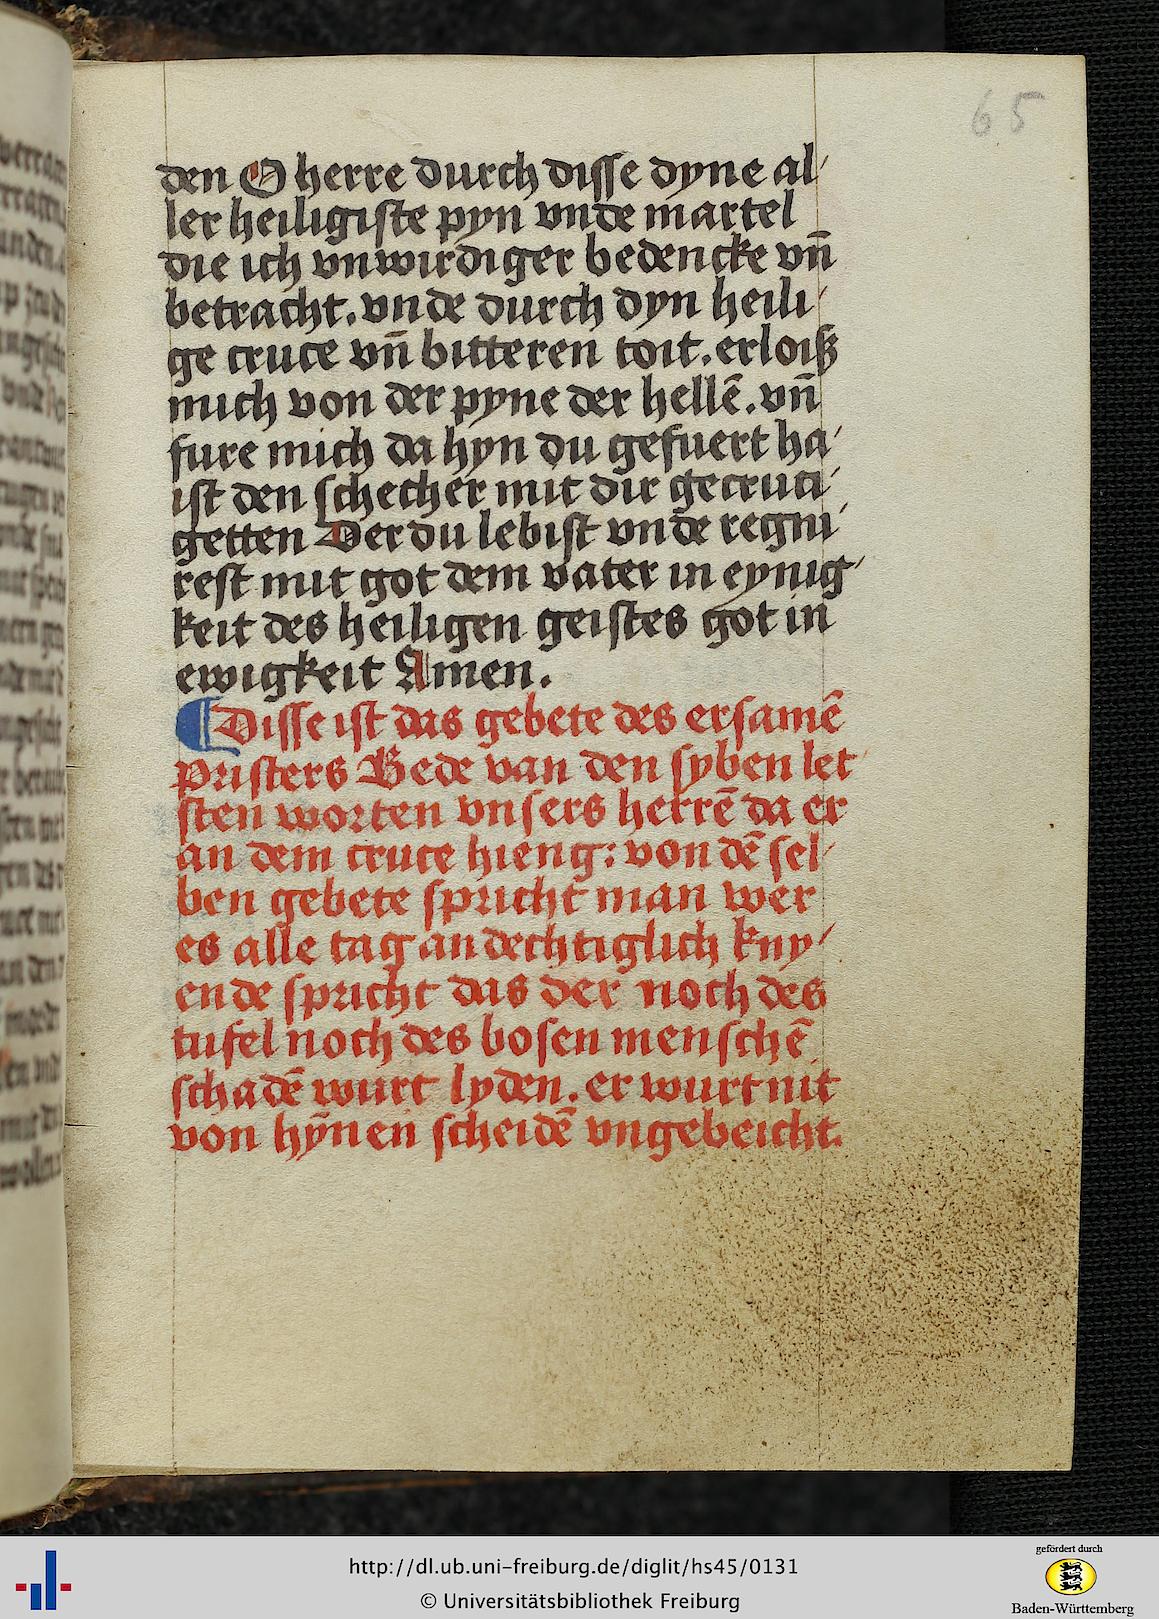 65
den O herre durch disse dyne al/
ler heiligiste pyn vnde martel
die ich vnwirdiger bedencke vn̄
betracht. vnde durch dyn heili/
ge cruce vn̄ bitteren toit. erloiß
mich von der pyne der hellē. vn̄
fure mich da hyn du gefuert ha/
ist den schecher mit dir gecruci/
getten Der du lebist vnde regni/
rest mit got dem vater in eynig/
keit des heiligen geistes got in
ewigkeit Amen.
¶ Disse ist das gebete des ersamē
pristers Bede van den syben let/
sten worten vnsers herrē da er
an dem cruce hieng: von dē sel/
ben gebete spricht man wer
es alle tag andechtiglich kny/
ende spricht das der noch des
tufel noch des bosen menschē
schadē wurt lyden. er wurt nit
von hȳnen scheidē vngebeicht.
http://dl.ub.uni-freiburg.de/diglit/hs45/0131
© Universitätsbibliothek Freiburg
gefördert durch
Baden-Württemberg